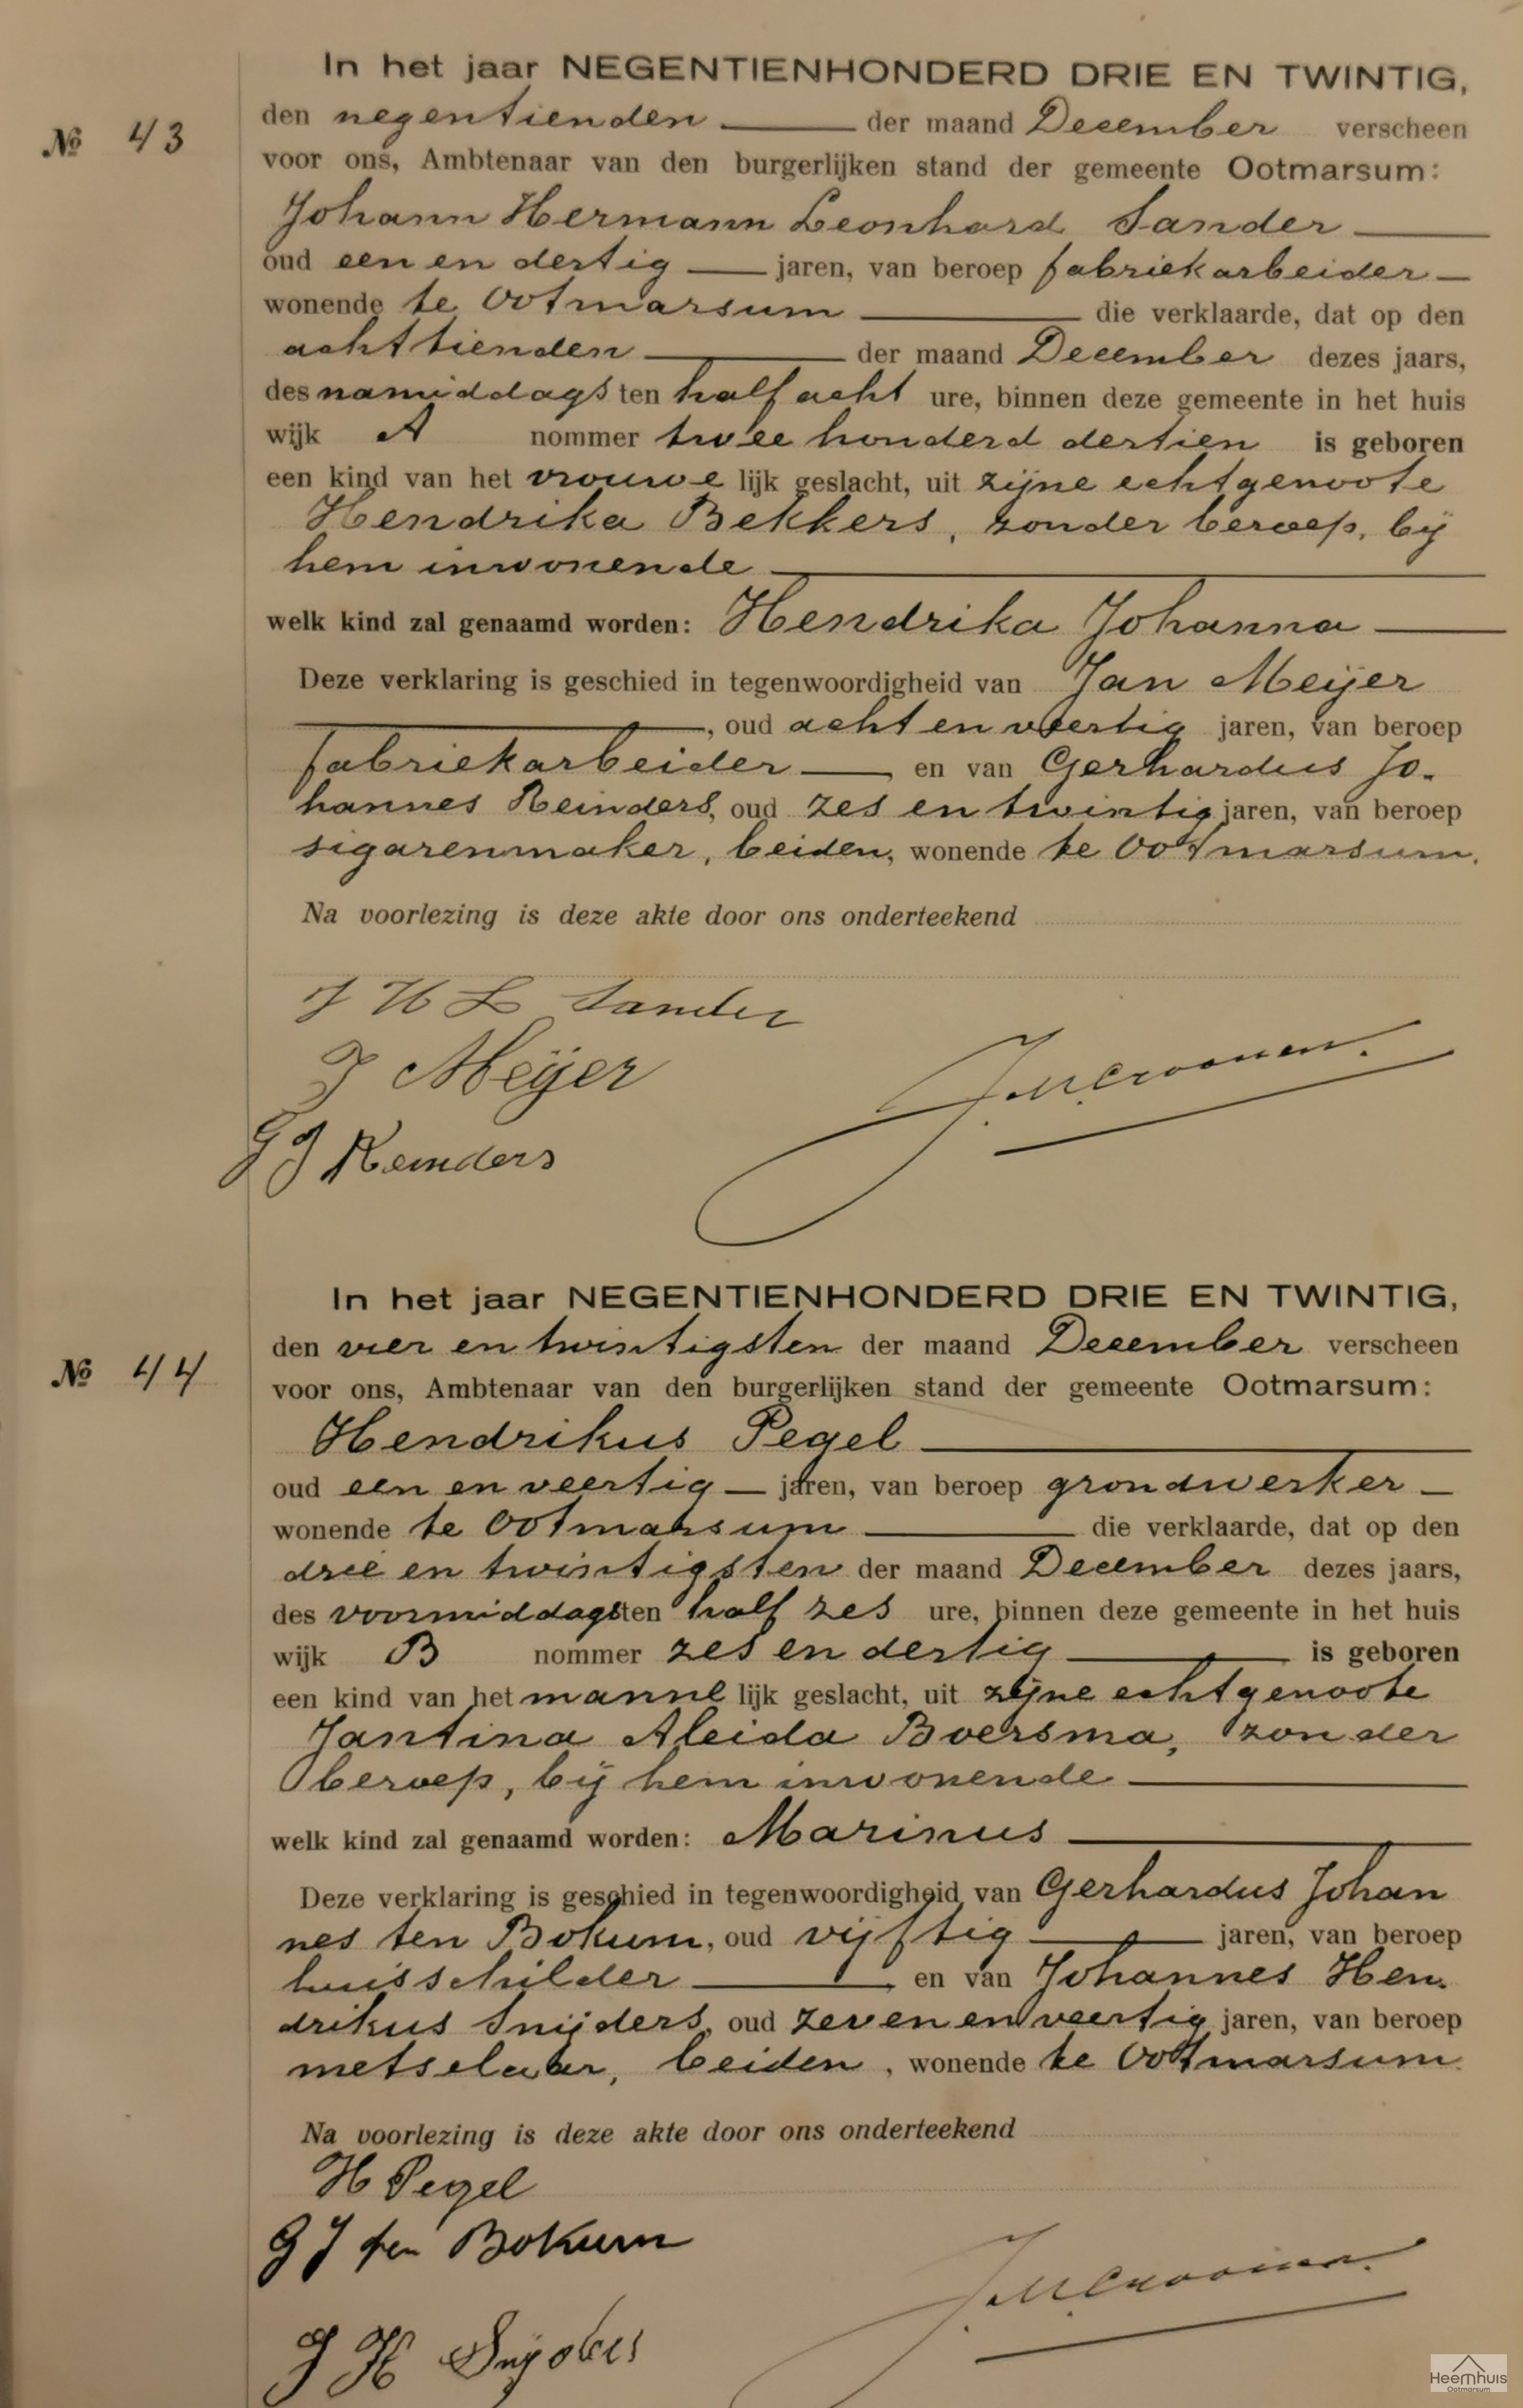 In het jaar NEGENTIENHONDERD DRIE EN TWINTIG,
№ 43
den negentienden der maand December verscheen
voor ons, Ambtenaar van den burgerlijken stand der gemeente Ootmarsum:
Johann Hermann Leonhard Sander
oud een en dertig jaren, van beroep fabriekarbeider
wonende te Ootmarsum die verklaarde, dat op den
achttienden der maand December dezes jaars,
des namiddags ten half acht ure, binnen deze gemeente in het huis
wijk A nommer twee honderd dertien is geboren
een kind van het vrouwe lijk geslacht, uit zijne echtgenoote
Hendrika Bekkers, zonder beroep, bij
hem inwonende
welk kind zal genaamd worden: Hendrika Johanna
Deze verklaring is geschied in tegenwoordigheid van Jan Meijer
, oud acht en veertig jaren, van beroep
fabriekarbeider, en van Gerhardus Jo-
hannes Reinders, oud zes en twintig jaren, van beroep
sigarenmaker, beiden, wonende te Ootmarsum.
Na voorlezing is deze akte door ons onderteekend
J H L Sander
J Meijer
G J Reinders
In het jaar NEGENTIENHONDERD DRIE EN TWINTIG,
№ 44
den vier en twintigsten der maand December verscheen
voor ons, Ambtenaar van den burgerlijken stand der gemeente Ootmarsum:
Hendrikus Pegel
oud een en veertig jaren, van beroep grondwerker
wonende te Ootmarsum die verklaarde, dat op den
drie en twintigsten der maand December dezes jaars,
des voormiddags ten half zes ure, binnen deze gemeente in het huis
wijk B nommer zes en dertig is geboren
een kind van het manne lijk geslacht, uit zijne echtgenoote
Jantina Aleida Boersma, zonder
beroep, bij hem inwonende
welk kind zal genaamd worden: Marinus
Deze verklaring is geschied in tegenwoordigheid van Gerhardus Johan
nes ten Bokum, oud vijftig jaren, van beroep
huisschilder, en van Johannes Hen-
drikus Snijders, oud zeven en veertig jaren, van beroep
metselaar, beiden, wonende te Ootmarsum.
Na voorlezing is deze akte door ons onderteekend
H Pegel
G J ten Bokum
J H Snijders
Heemhuis
Ootmarsum